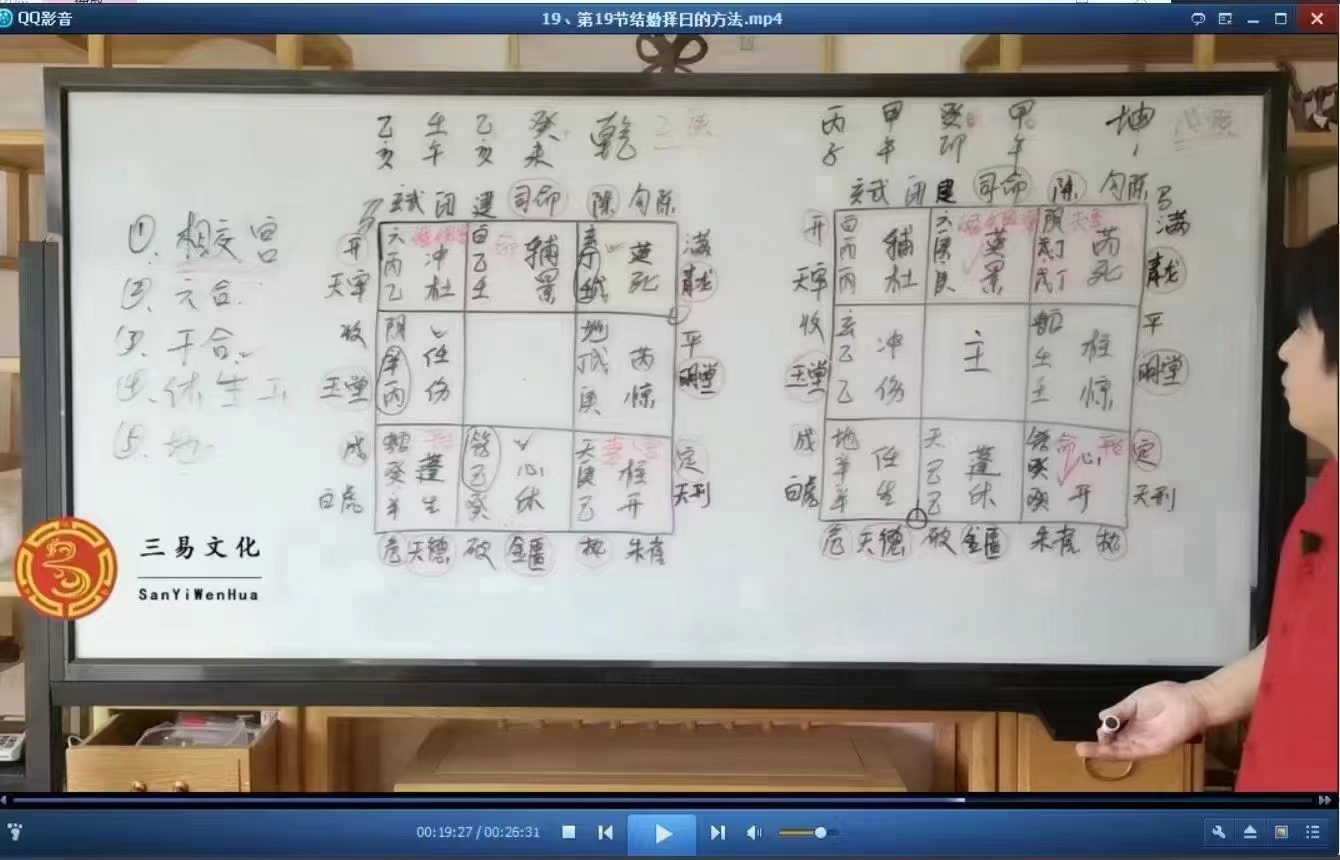 QQ影音
19、第19节结婚择日的方法.mp4
乙 壬 乙 癸 乾
亥 午 亥 未
丙 甲 癸 甲 坤
子 午 卯 午
①、相交宫
②、六合
③、干合
④、休生开
⑤、地
玄武 闭 建 司命 除 勾陈
开 六 丙 乙 冲 杜
白 乙 壬 辅 景
英 死
满 青龙
天牢
收 阴 辛 丙 任 伤
地 戊 庚 芮 惊
平
玉堂
明堂
成 蛇 癸 辛 蓬 生
己 癸 心 休
天 庚 己 柱 开
定
白虎
天刑
危 天德 破 金匮 执 朱雀
玄武 闭 建 司命 除 勾陈
开 白 丙 丙 辅 杜
六 庚 庚 英 景
阴 戊丁 戊丁 芮 死
满 青龙
天牢
收 玄 乙 乙 冲 伤
主
蛇 壬 壬 柱 惊
平
玉堂
明堂
成 地 辛 辛 任 生
天 己 己 蓬 休
癸 癸 心 开
定
白虎
天刑
危 天德 破 金匮 朱雀 执
三易文化
SanYiWenHua
00:19:27 / 00:26:31